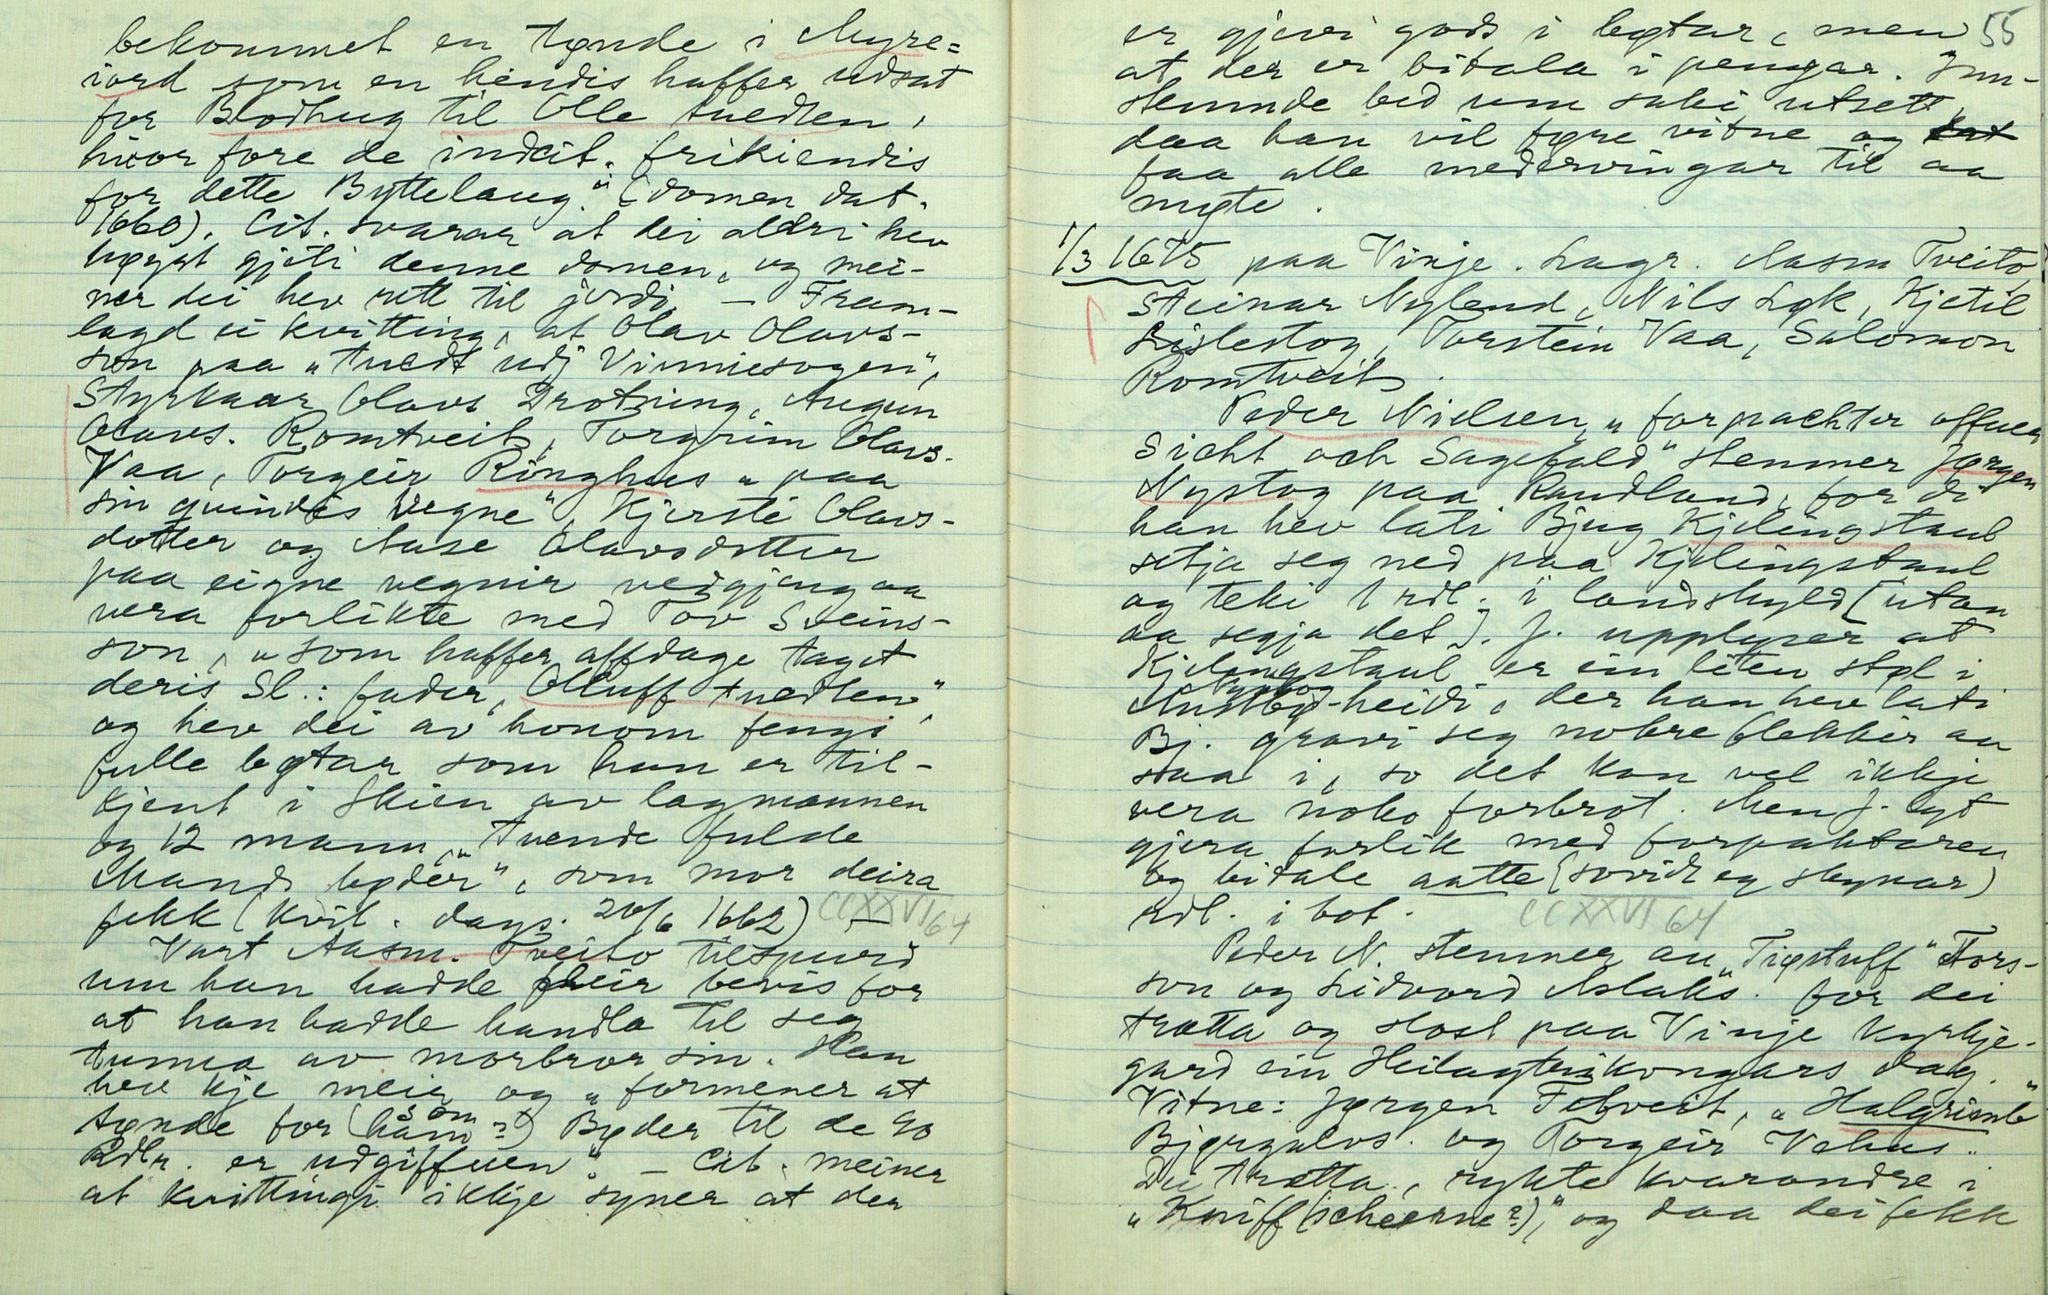 bekommet en tønde i Myre=
iord som en hendis haffer udsat
for Blodhug til Olle tuedten,
huor fore de indcit. frikiendis
for dette Byttelaug." (domen dat.
1660). Cit. svarar at dei aldri hev
høyrt gjeti denne domen, og mei-
ner dei hev rett til jordi. — Fram-
lagd ei kvitting, at Olav Olavs-
son paa "tuedt udj Vinniesogen",
Styrkaar Olavs Drotning, Augun
Olavs. Romtveit, Torgrim Olavs.
Vaa, Torgeir Ringhus "paa
sin quindis vegne", Kjersti Olavs-
dotter og Aase Olavsdotter
paa eigne vegnir vedgjeng aa
vera forlikte med Tov Sveins-
son, "som haffer affdage taget
deris Sl: fader, Olluff tuedten",
og hev dei av honom fengi
fulle bøtar som han er til-
kjent i Skien av lagmannen
og 12 mann, "tvende fulde
Mands bøder", som mor deira
fekk (kvit. dags. 20/6 1662) — CCXXVI 64
Vart Aasm. Tveito tilspurd
um han hadde fleir bevis for
at han hadde handla til seg
tunna av morbror sin. Han
hev kje meir og "formener at
tønde for (ham som?) Bøder til de 90
Rdlr. er udgiffuen". — Cit. meiner
at kvittingi ikkje syner at der
55
er gjevi gods i bøtar, men
at der er bitala i pengar. Inn-
stemnde bed um saki utsett,
daa han vil føre vitne og
faa alle medervingar til aa
møte.
1/3 1675 paa Vinje. Lagr. Aasm Tveito,
Steinar Nylend, Nils Løk, Kjetil
Lislestog, Torstein Vaa, Salomon
Romtveit.
Peder Nielsen, "forpachter offuer
Sicht och Sagefald" stemner Jørgen
Nystog paa Raudland, for di
han hev lati Bjug Kjelingstaul
setja seg ned paa Kjelingstaul
og teki 1 rdl. i landskyld [utan
aa segja det]. J. upplyser at
Kjelingstaul er ein liten støl i
Nystog-heidi, der han hev lati
Bj. gravi seg nokre flekkir aa
saa i, so det kan vel ikkje
vera noko forbrot. Men J. lyt
gjera forlik med forpaktaren
og bitale aatte (sovidt eg skynar)
rdl. i bot. CCXXVI 64
Peder N. stemner au "Tiøstuff" Tors-
son og Sidvord Aslaks. for dei
trætta og slost paa Vinje kyrkje-
gard ein Heilagtrikongars dag.
Vitne: Jørgen Fetveit, "Halgrimb"
Bjørgulvs. og Torgeir Vehus.
Dei trætta, rykte kvarandre i
"Kniff(scheerne?)", og daa dei fekk